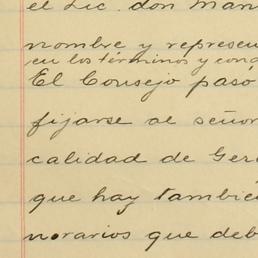 el Lic. don Man
nombre y represen
en los términos y cond
El Consejo pasó
fijarse al señor
calidad de Gere
que hay también
norarios que deb